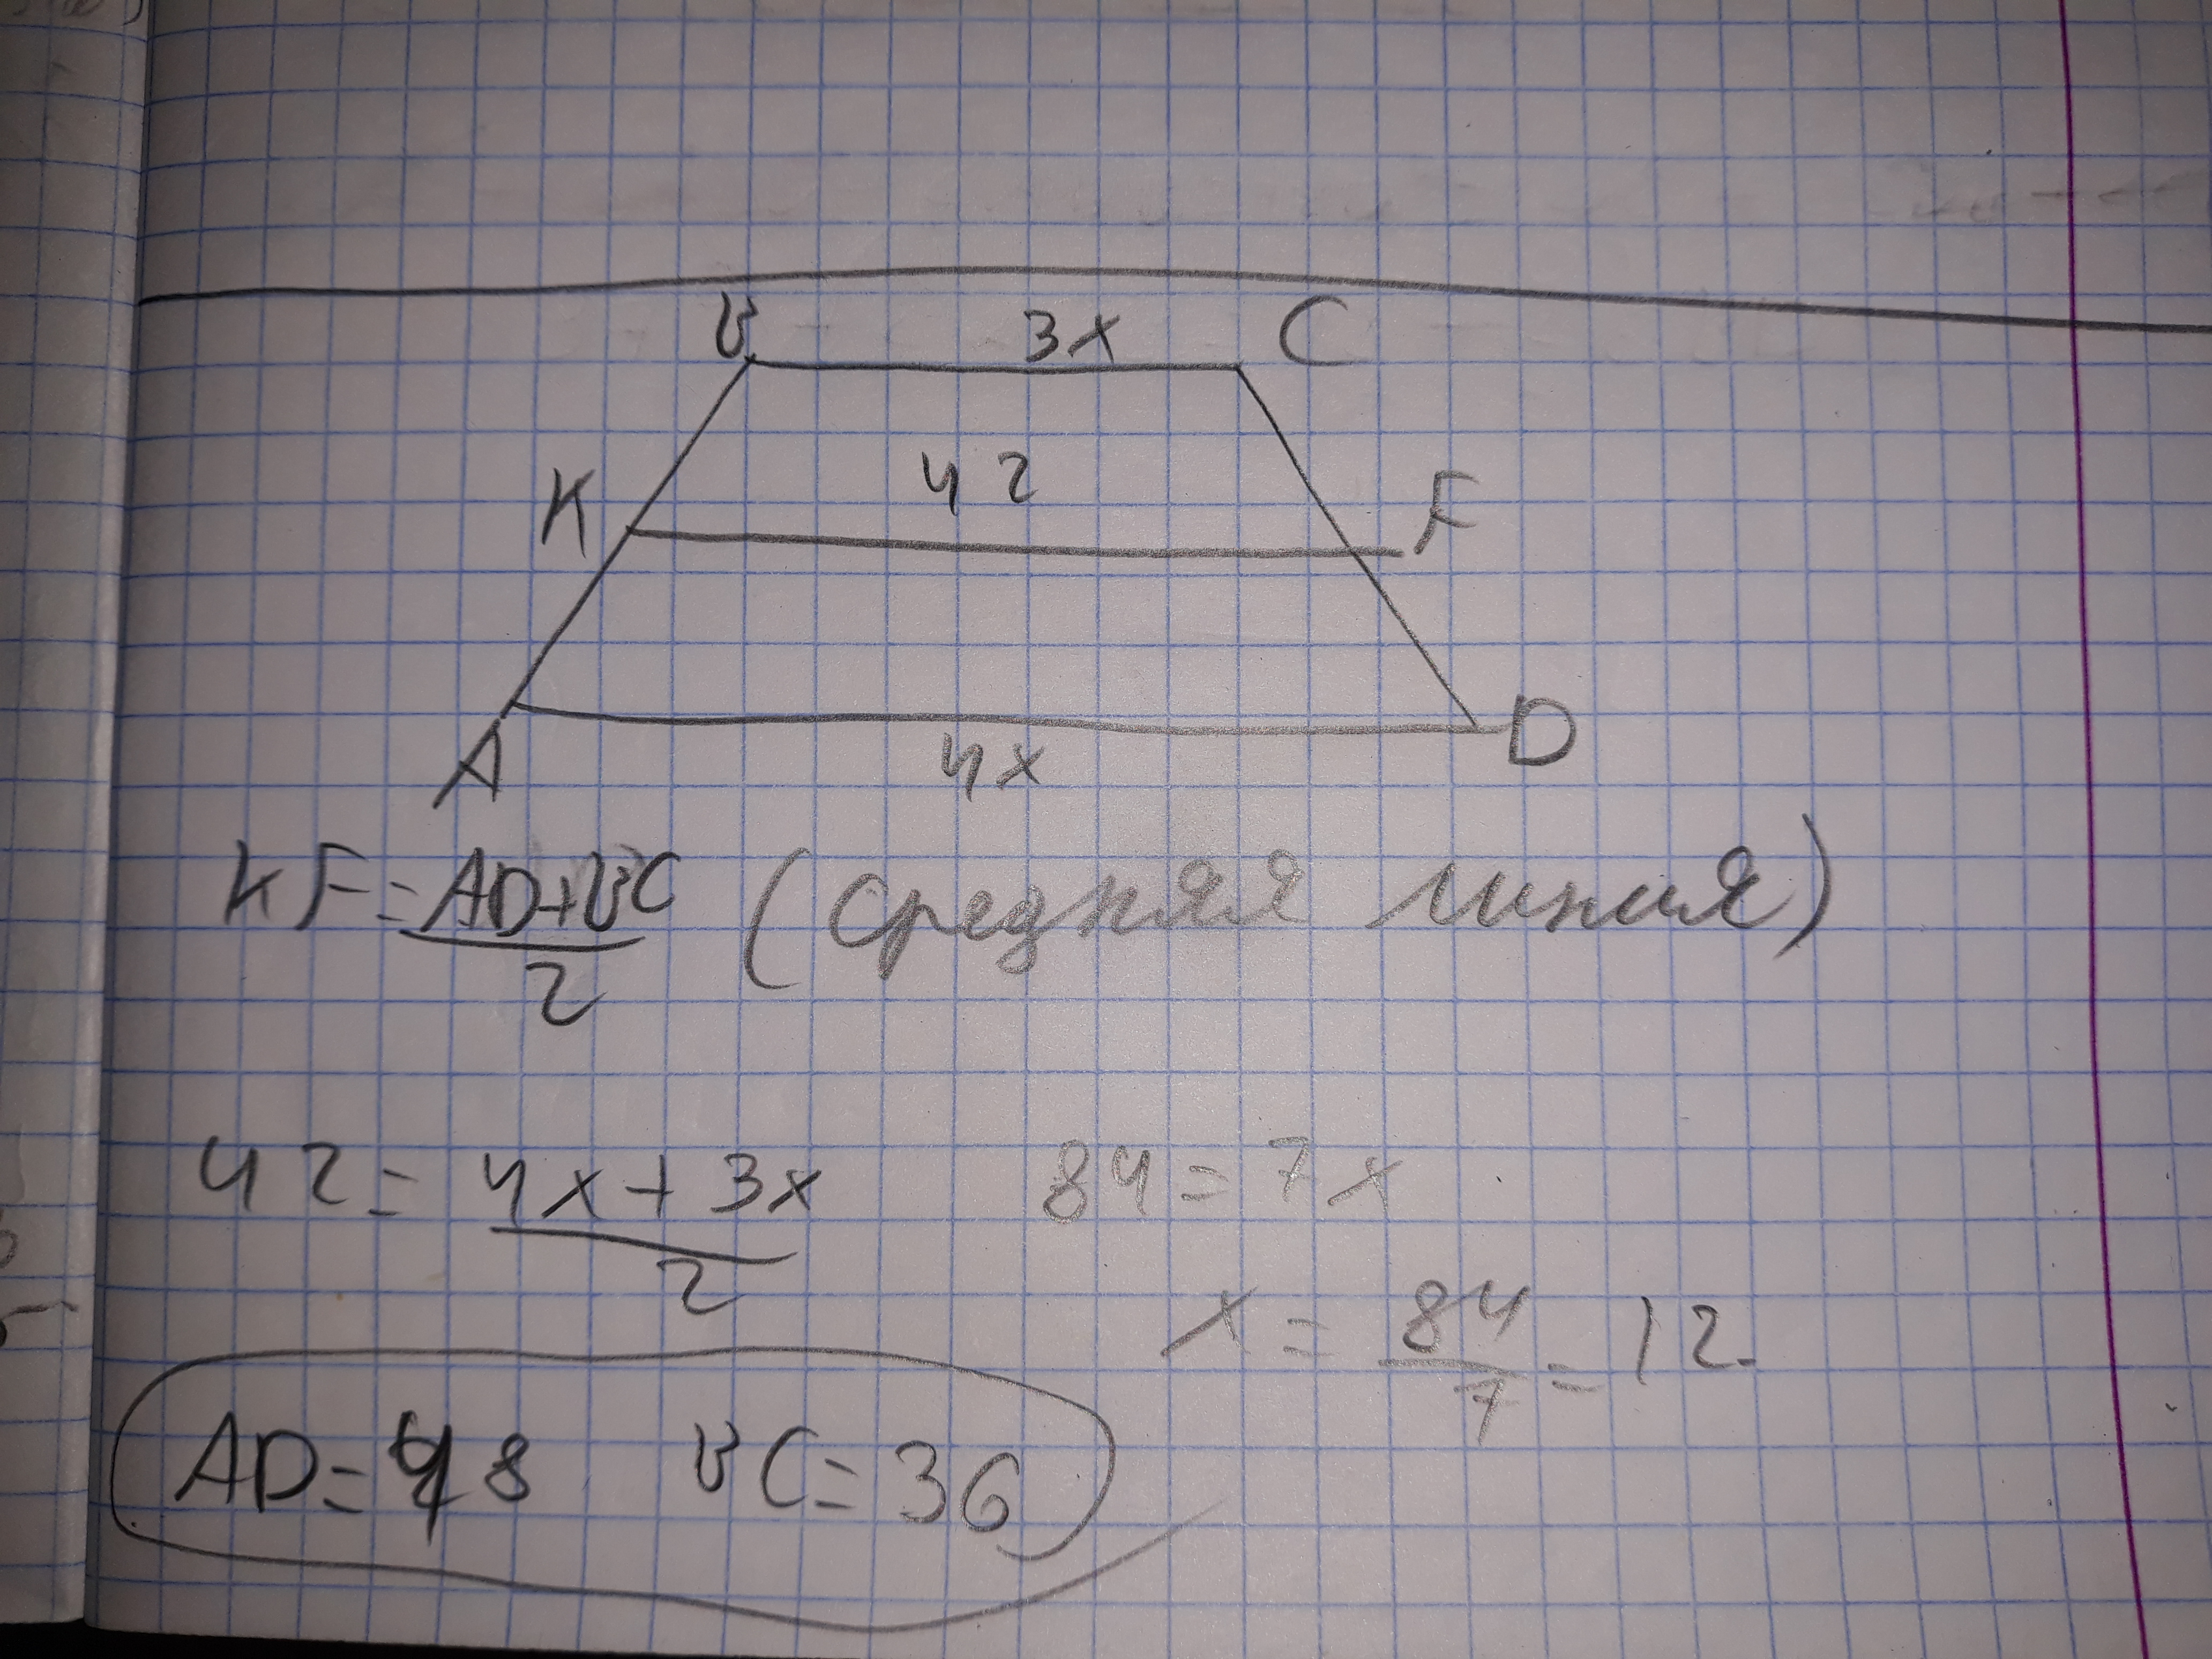 B 3x C
K 42 F
A 4x D
KF = AD+BC / 2 (средняя линия)
42 = 4x + 3x / 2 84 = 7x
x = 84 / 7 = 12
AD = 48 BC = 36